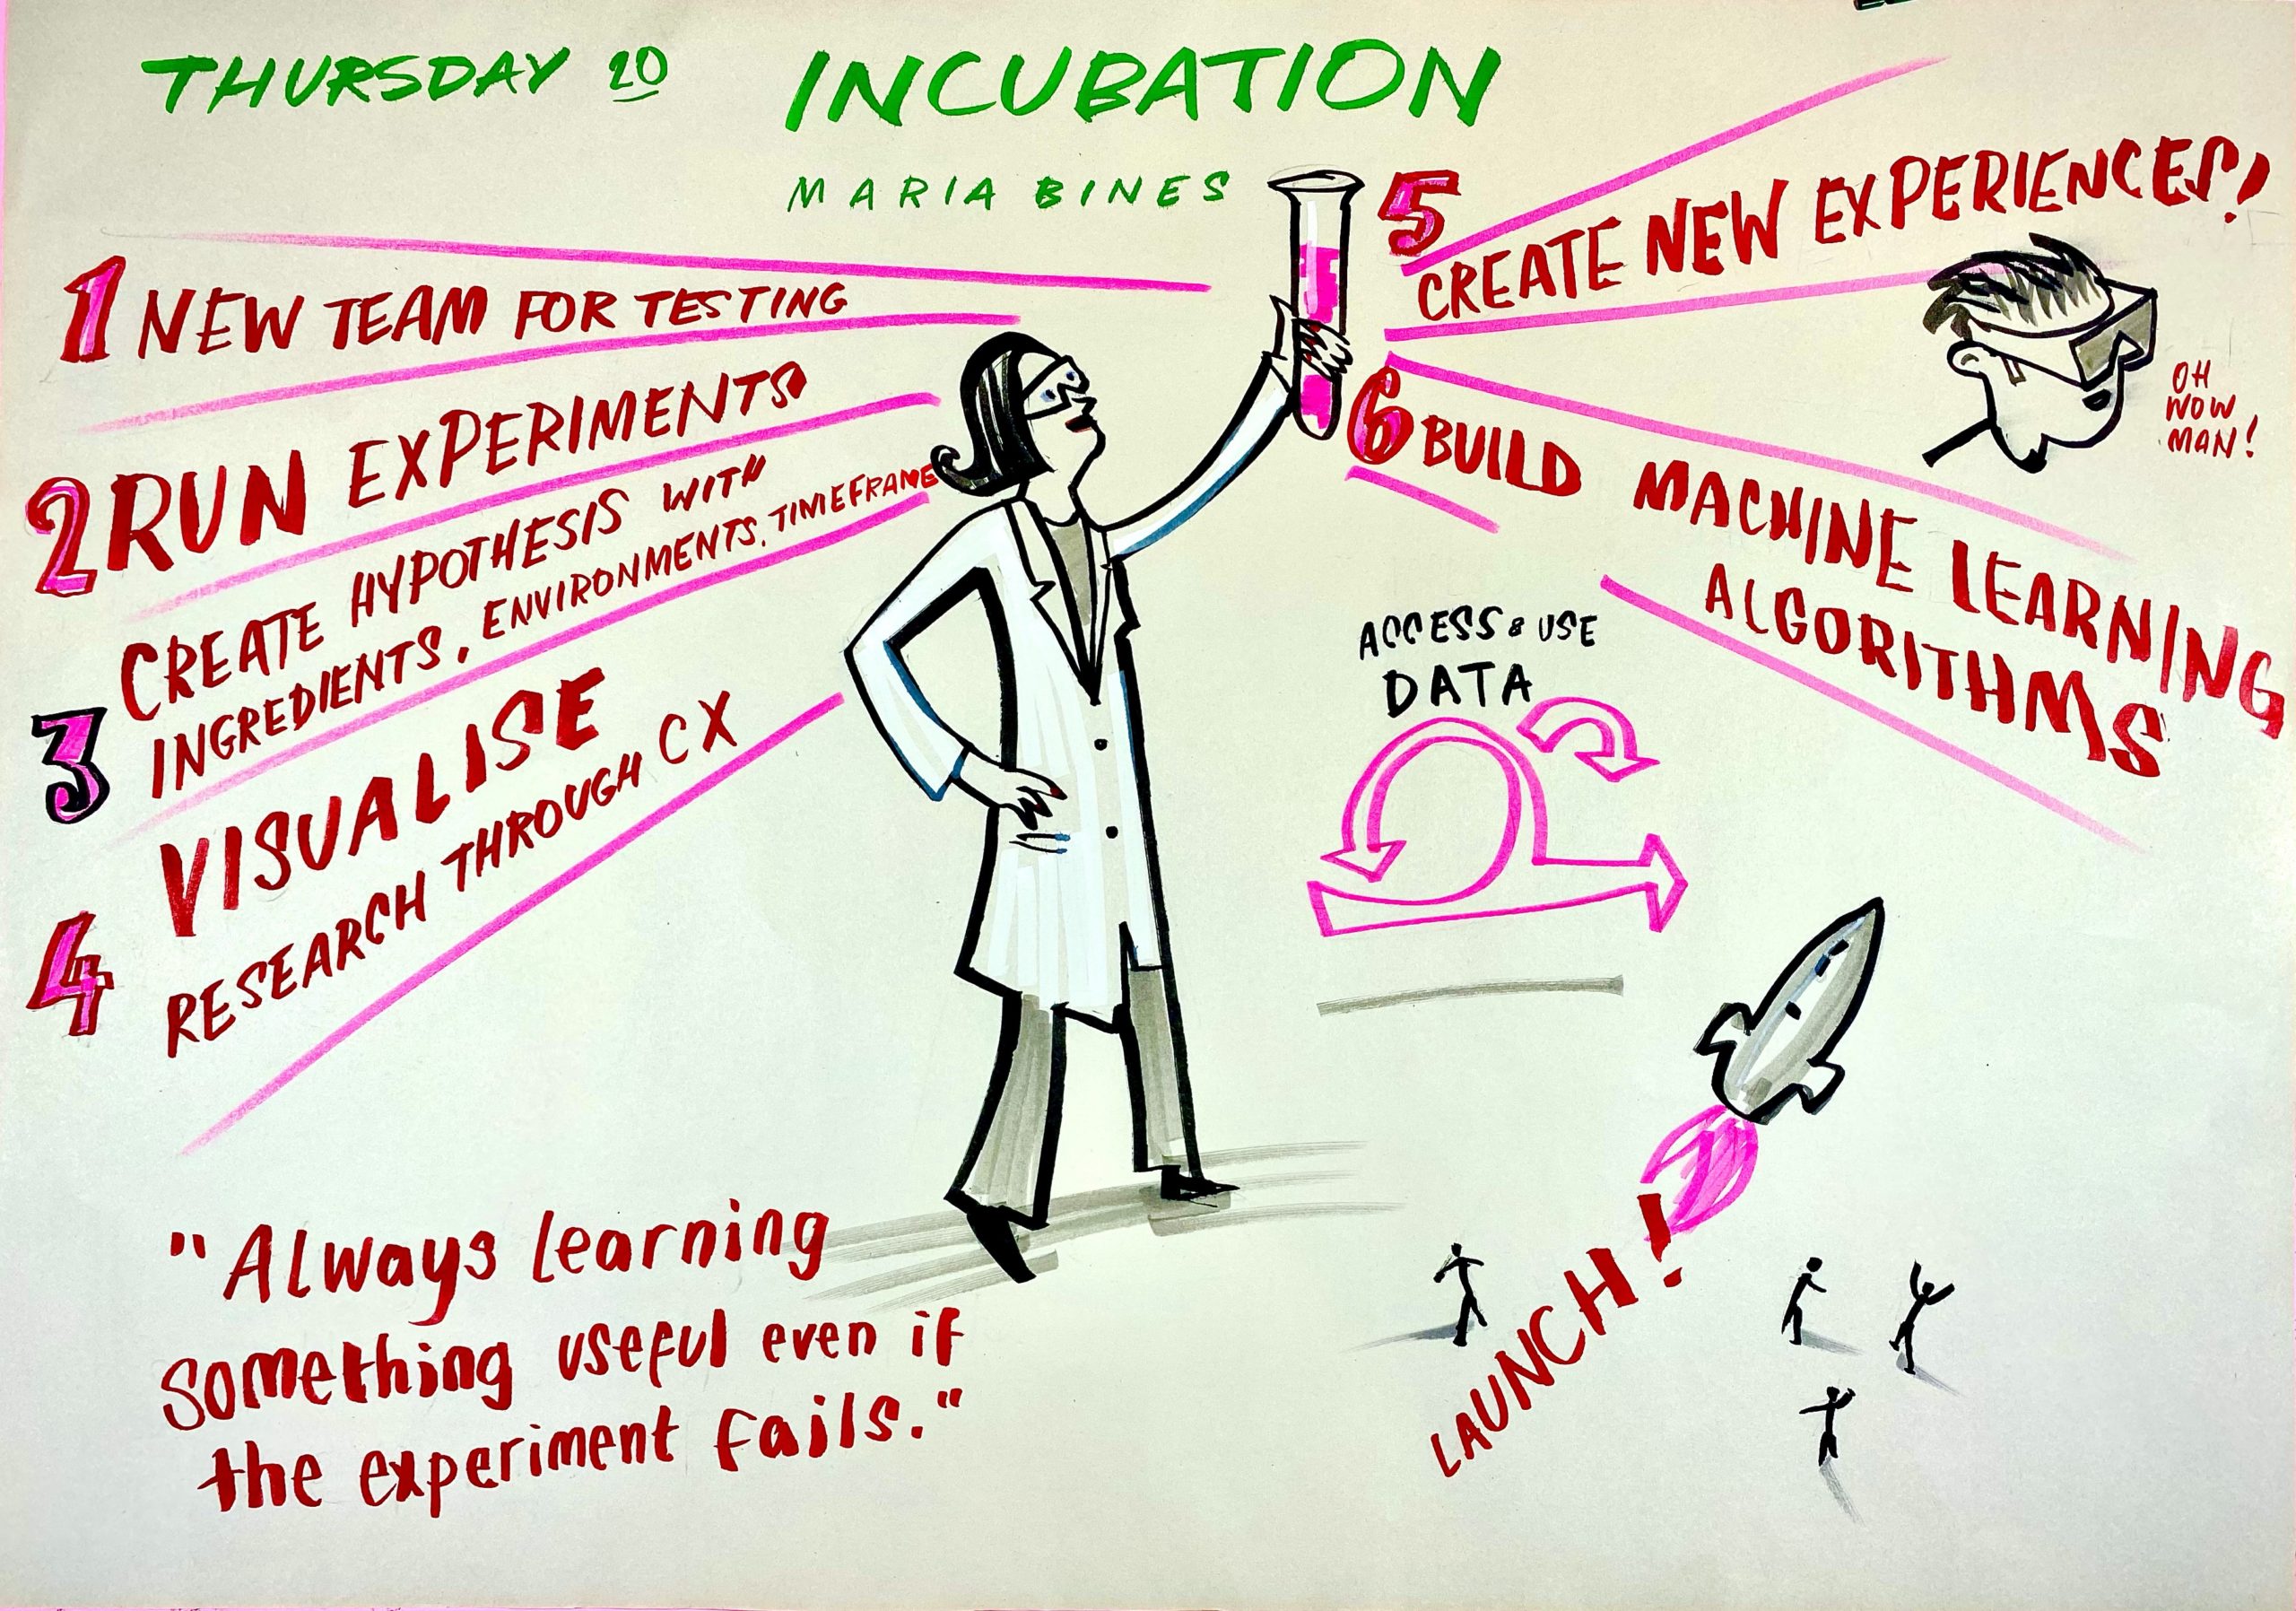 THURSDAY 20
INCUBATION
MARIA BINES
1 NEW TEAM FOR TESTING
2 RUN EXPERIMENTS
3 CREATE HYPOTHESIS WITH
INGREDIENTS, ENVIRONMENTS, TIMEFRAME
4 VISUALISE
RESEARCH THROUGH CX
5 CREATE NEW EXPERIENCES!
OH
WOW
MAN!
6 BUILD MACHINE LEARNING
ALGORITHMS
ACCESS & USE
DATA
LAUNCH!
"Always learning
something useful even if
the experiment fails."